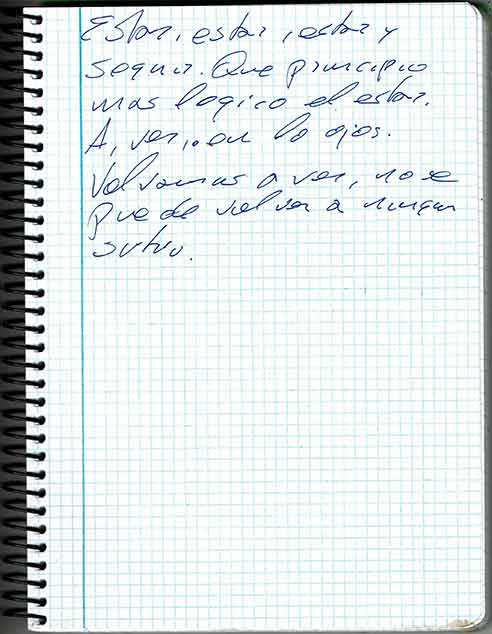 Estar, estar, estar y
seguir. Que principio
mas logico el estar.
A, ver, en lo ojos.
Volvamos a ver, no se
puede volver a ningun